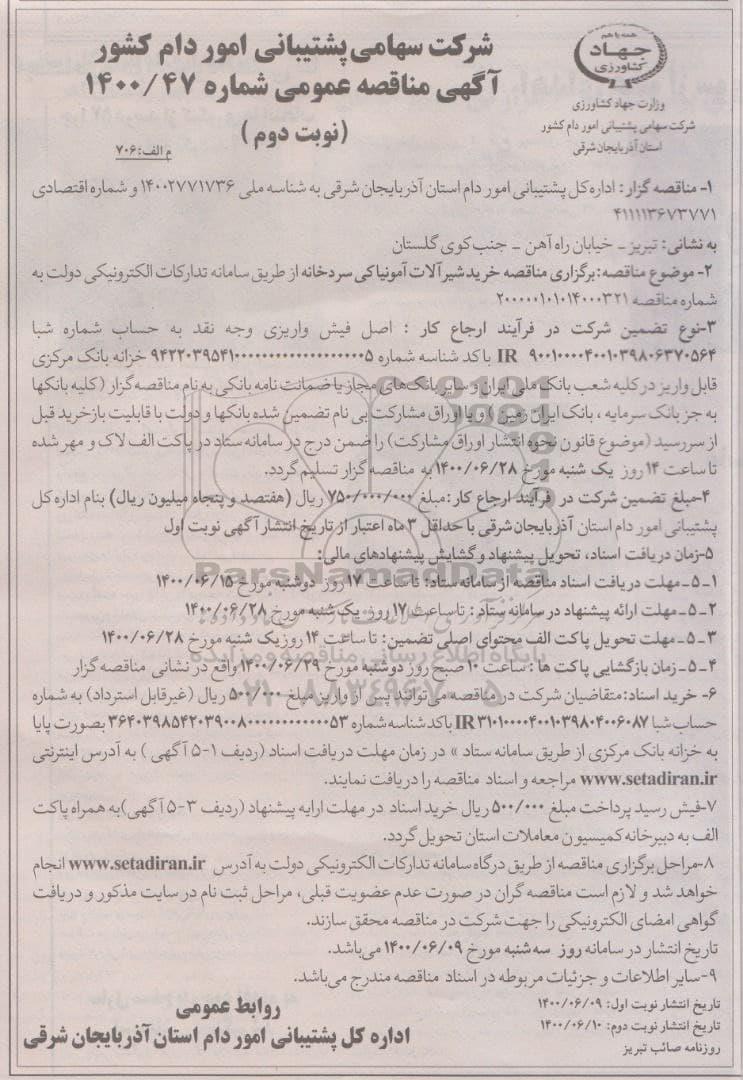 شرکت سهامی پشتیبانی امور دام کشور
آگهی مناقصه عمومی شماره ۱۴۰۰/۴۷
(نوبت دوم)
م الف: ۷۰۶
همه با هم
جهاد
کشاورزی
وزارت جهاد کشاورزی
شرکت سهامی پشتیبانی امور دام کشور
استان آذربایجان شرقی
۱- مناقصه گزار: اداره کل پشتیبانی امور دام استان آذربایجان شرقی به شناسه ملی ۱۴۰۰۲۷۷۱۷۳۶ و شماره اقتصادی
۴۱۱۱۱۳۶۷۳۷۷۱
به نشانی: تبریز ـ خیابان راه آهن ـ جنب کوی گلستان
۲- موضوع مناقصه: برگزاری مناقصه خرید شیرآلات آمونیاکی سردخانه از طریق سامانه تدارکات الکترونیکی دولت به
شماره مناقصه ۲۰۰۰۰۰۱۰۱۰۱۴۰۰۰۳۲۱
۳-نوع تضمین شرکت در فرآیند ارجاع کار : اصل فیش واریزی وجه نقد به حساب شماره شبا
IR ۹۰۰۱۰۰۰۰۴۰۰۱۰۳۹۸۰۶۳۷۰۵۶۴ با کد شناسه شماره خزانه بانک مرکزی
قابل واریز در کلیه شعب بانک ملی ایران و سایر بانک‌های مجاز یا ضمانت نامه بانکی به نام مناقصه گزار (کلیه بانکها
به جز بانک سرمایه ، بانک ایران زمین ) و یا اوراق مشارکت بی نام تضمین شده بانکها و دولت با قابلیت بازخرید قبل
از سررسید (موضوع قانون نحوه انتشار اوراق مشارکت) را ضمن درج در سامانه ستاد در پاکت الف لاک و مهر شده
تا ساعت ۱۴ روز یک شنبه مورخ ۱۴۰۰/۰۶/۲۸ به مناقصه گزار تسلیم گردد.
۴-مبلغ تضمین شرکت در فرآیند ارجاع کار: مبلغ ۷۵۰/۰۰۰/۰۰۰ ریال (هفتصد و پنجاه میلیون ریال) بنام اداره کل
پشتیبانی امور دام استان آذربایجان شرقی با حداقل ۳ ماه اعتبار از تاریخ انتشار آگهی نوبت اول
۵-زمان دریافت اسناد، تحویل پیشنهاد و گشایش پیشنهادهای مالی:
۱ـ ۵ـ مهلت دریافت اسناد مناقصه از سامانه ستاد: تا ساعت ۱۷ روز دوشنبه مورخ ۱۴۰۰/۰۶/۱۵
۲ـ ۵ـ مهلت ارائه پیشنهاد در سامانه ستاد : تا ساعت ۱۷ روز یک شنبه مورخ ۱۴۰۰/۰۶/۲۸
۳ـ ۵ـ مهلت تحویل پاکت الف محتوای اصلی تضمین: تا ساعت ۱۴ روز یک شنبه مورخ ۱۴۰۰/۰۶/۲۸
۴ـ ۵ـ زمان بازگشایی پاکت ها : ساعت ۱۰ صبح روز دوشنبه مورخ ۱۴۰۰/۰۶/۲۹ واقع در نشانی مناقصه گزار
۶- خرید اسناد: متقاضیان شرکت در مناقصه می‌توانند پس از واریز مبلغ ۵۰۰/۰۰۰ ریال (غیرقابل استرداد) به شماره
حساب شبا IR ۳۱۰۱۰۰۰۰۴۰۰۱۰۳۹۸۰۴۰۰۶۰۸۷ با کد شناسه شماره بصورت پایا
به خزانه بانک مرکزی از طریق سامانه ستاد » در زمان مهلت دریافت اسناد (ردیف ۱-۵ آگهی ) به آدرس اینترنتی
www.setadiran.ir مراجعه و اسناد مناقصه را دریافت نمایند.
۷-فیش رسید پرداخت مبلغ ۵۰۰/۰۰۰ ریال خرید اسناد در مهلت ارایه پیشنهاد (ردیف ۳-۵ آگهی) به همراه پاکت
الف به دبیرخانه کمیسیون معاملات استان تحویل گردد.
۸-مراحل برگزاری مناقصه از طریق درگاه سامانه تدارکات الکترونیکی دولت به آدرس www.setadiran.ir انجام
خواهد شد و لازم است مناقصه گران در صورت عدم عضویت قبلی، مراحل ثبت نام در سایت مذکور و دریافت
گواهی امضای الکترونیکی را جهت شرکت در مناقصه محقق سازند.
تاریخ انتشار در سامانه روز سه شنبه مورخ ۱۴۰۰/۰۶/۰۹ می‌باشد.
۹-سایر اطلاعات و جزئیات مربوطه در اسناد مناقصه مندرج می‌باشد.
تاریخ انتشار نوبت اول: ۱۴۰۰/۰۶/۰۹
تاریخ انتشار نوبت دوم: ۱۴۰۰/۰۶/۱۰
روزنامه صائب تبریز
روابط عمومی
اداره کل پشتیبانی امور دام استان آذربایجان شرقی
ParsNamadData
پایگاه اطلاع رسانی مناقصه و مزایده